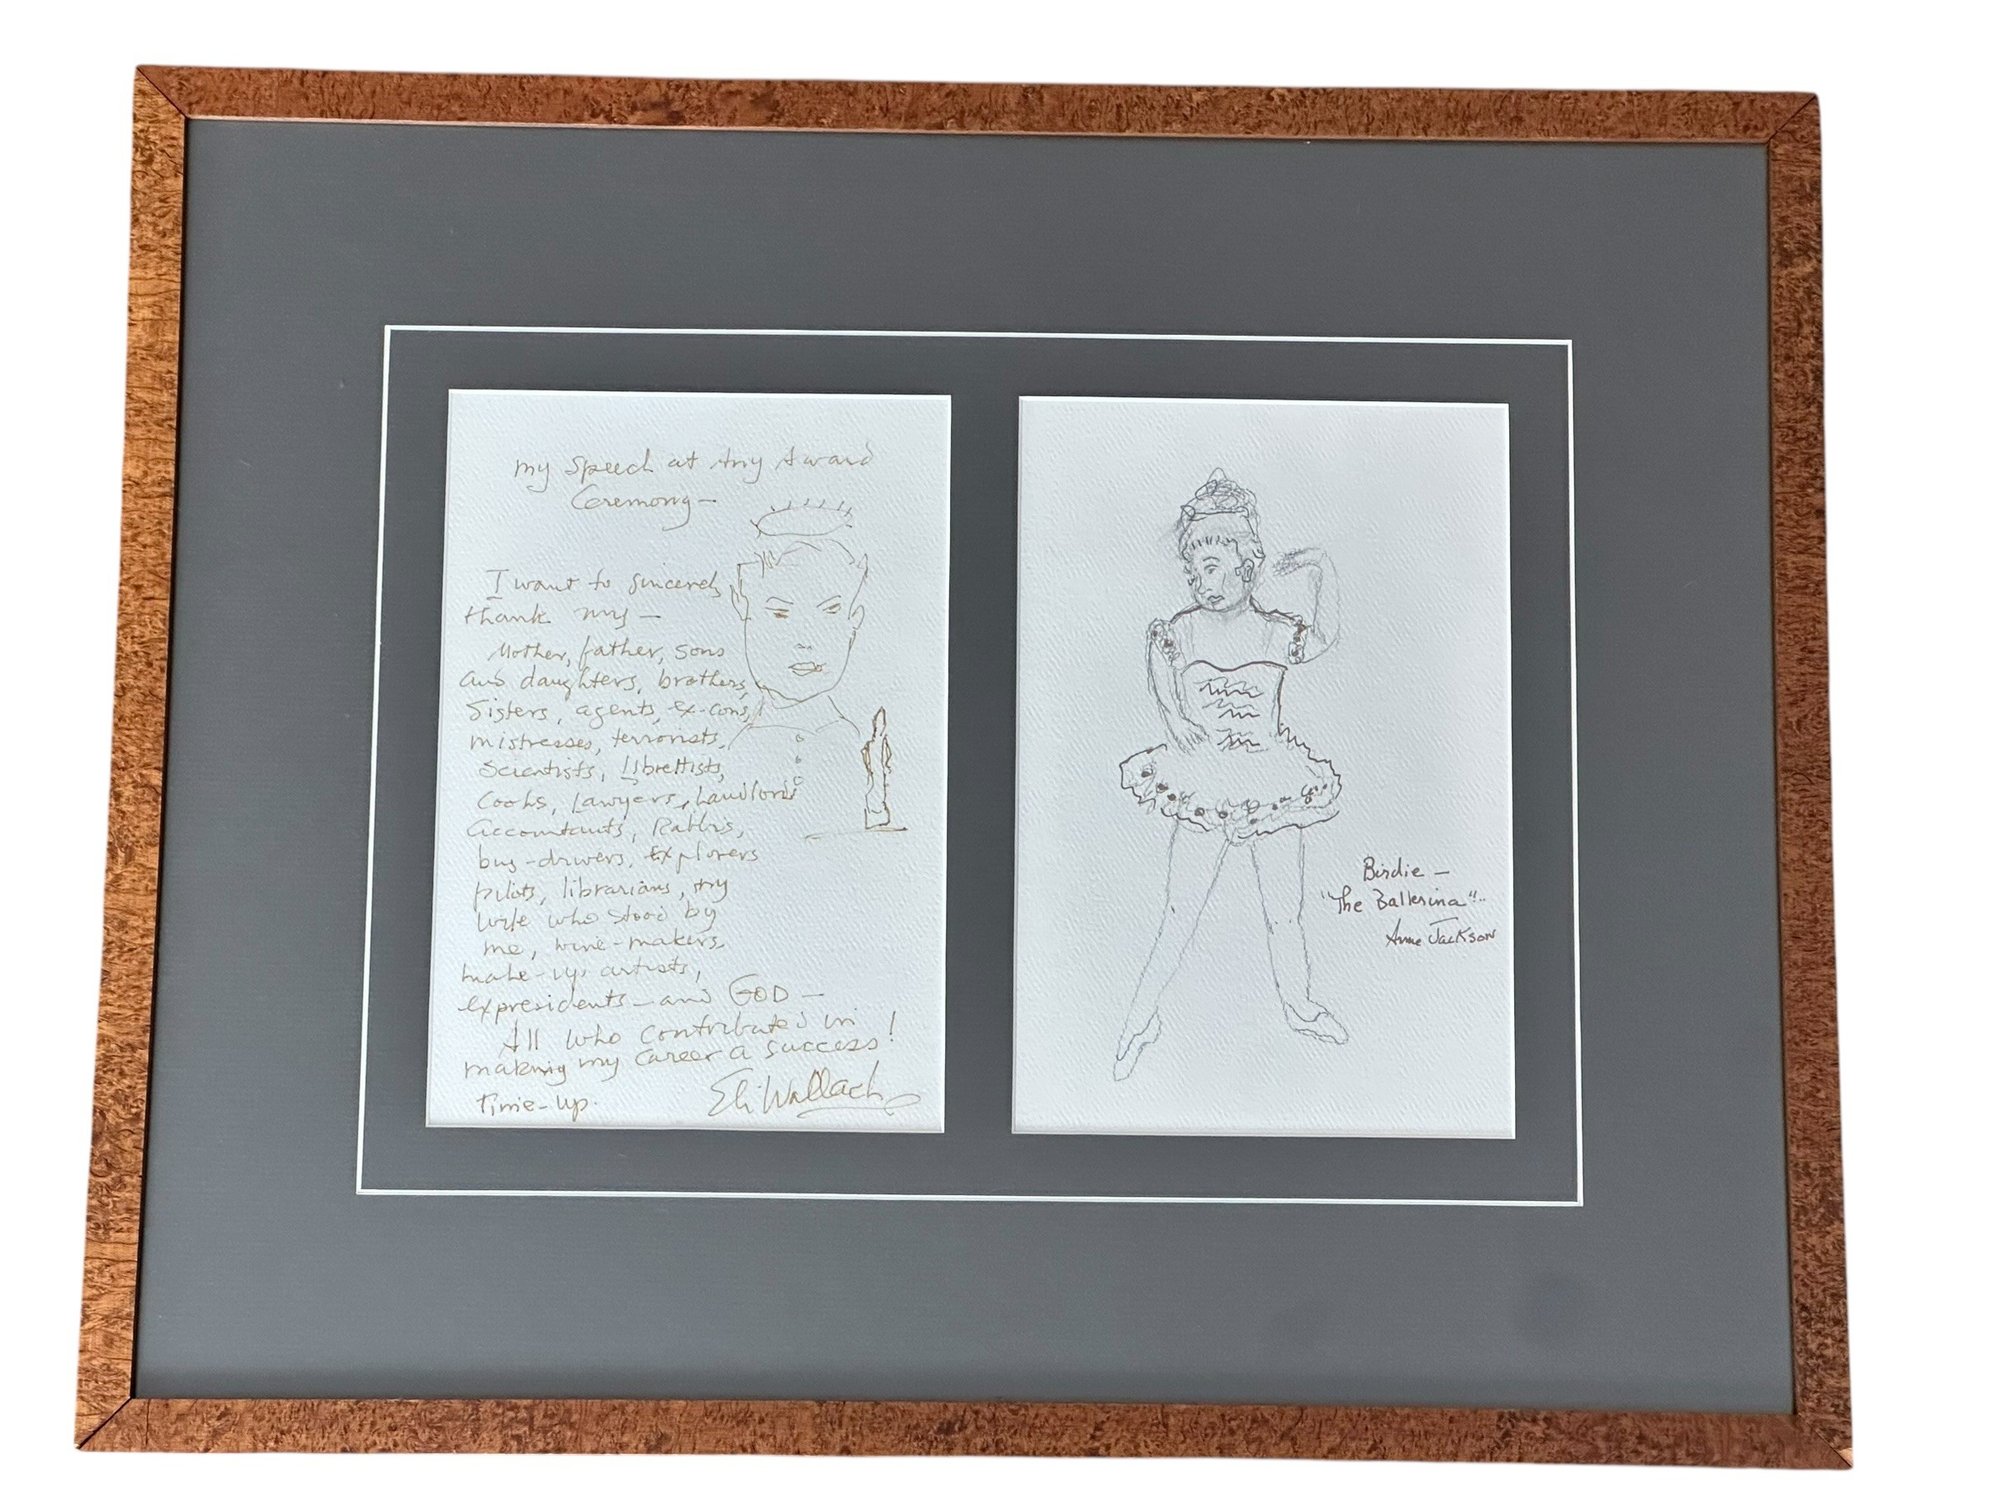 my speech at Any Award
Ceremony—
I want to sincerely
thank my—
Mother, father, sons
and daughters, brothers,
Sisters, agents, ex-cons,
mistresses, terrorists,
Scientists, librettists,
Cooks, Lawyers, Landlords
accountants, Rabbis,
bus-drivers, Explorers
pilots, librarians, my
wife who stood by
me, wine-makers,
make-up artists,
expresidents—and GOD—
All who contributed in
making my career a success!
time-up.
Eli Wallach
Birdie —
"The Ballerina"..
Anne Jackson